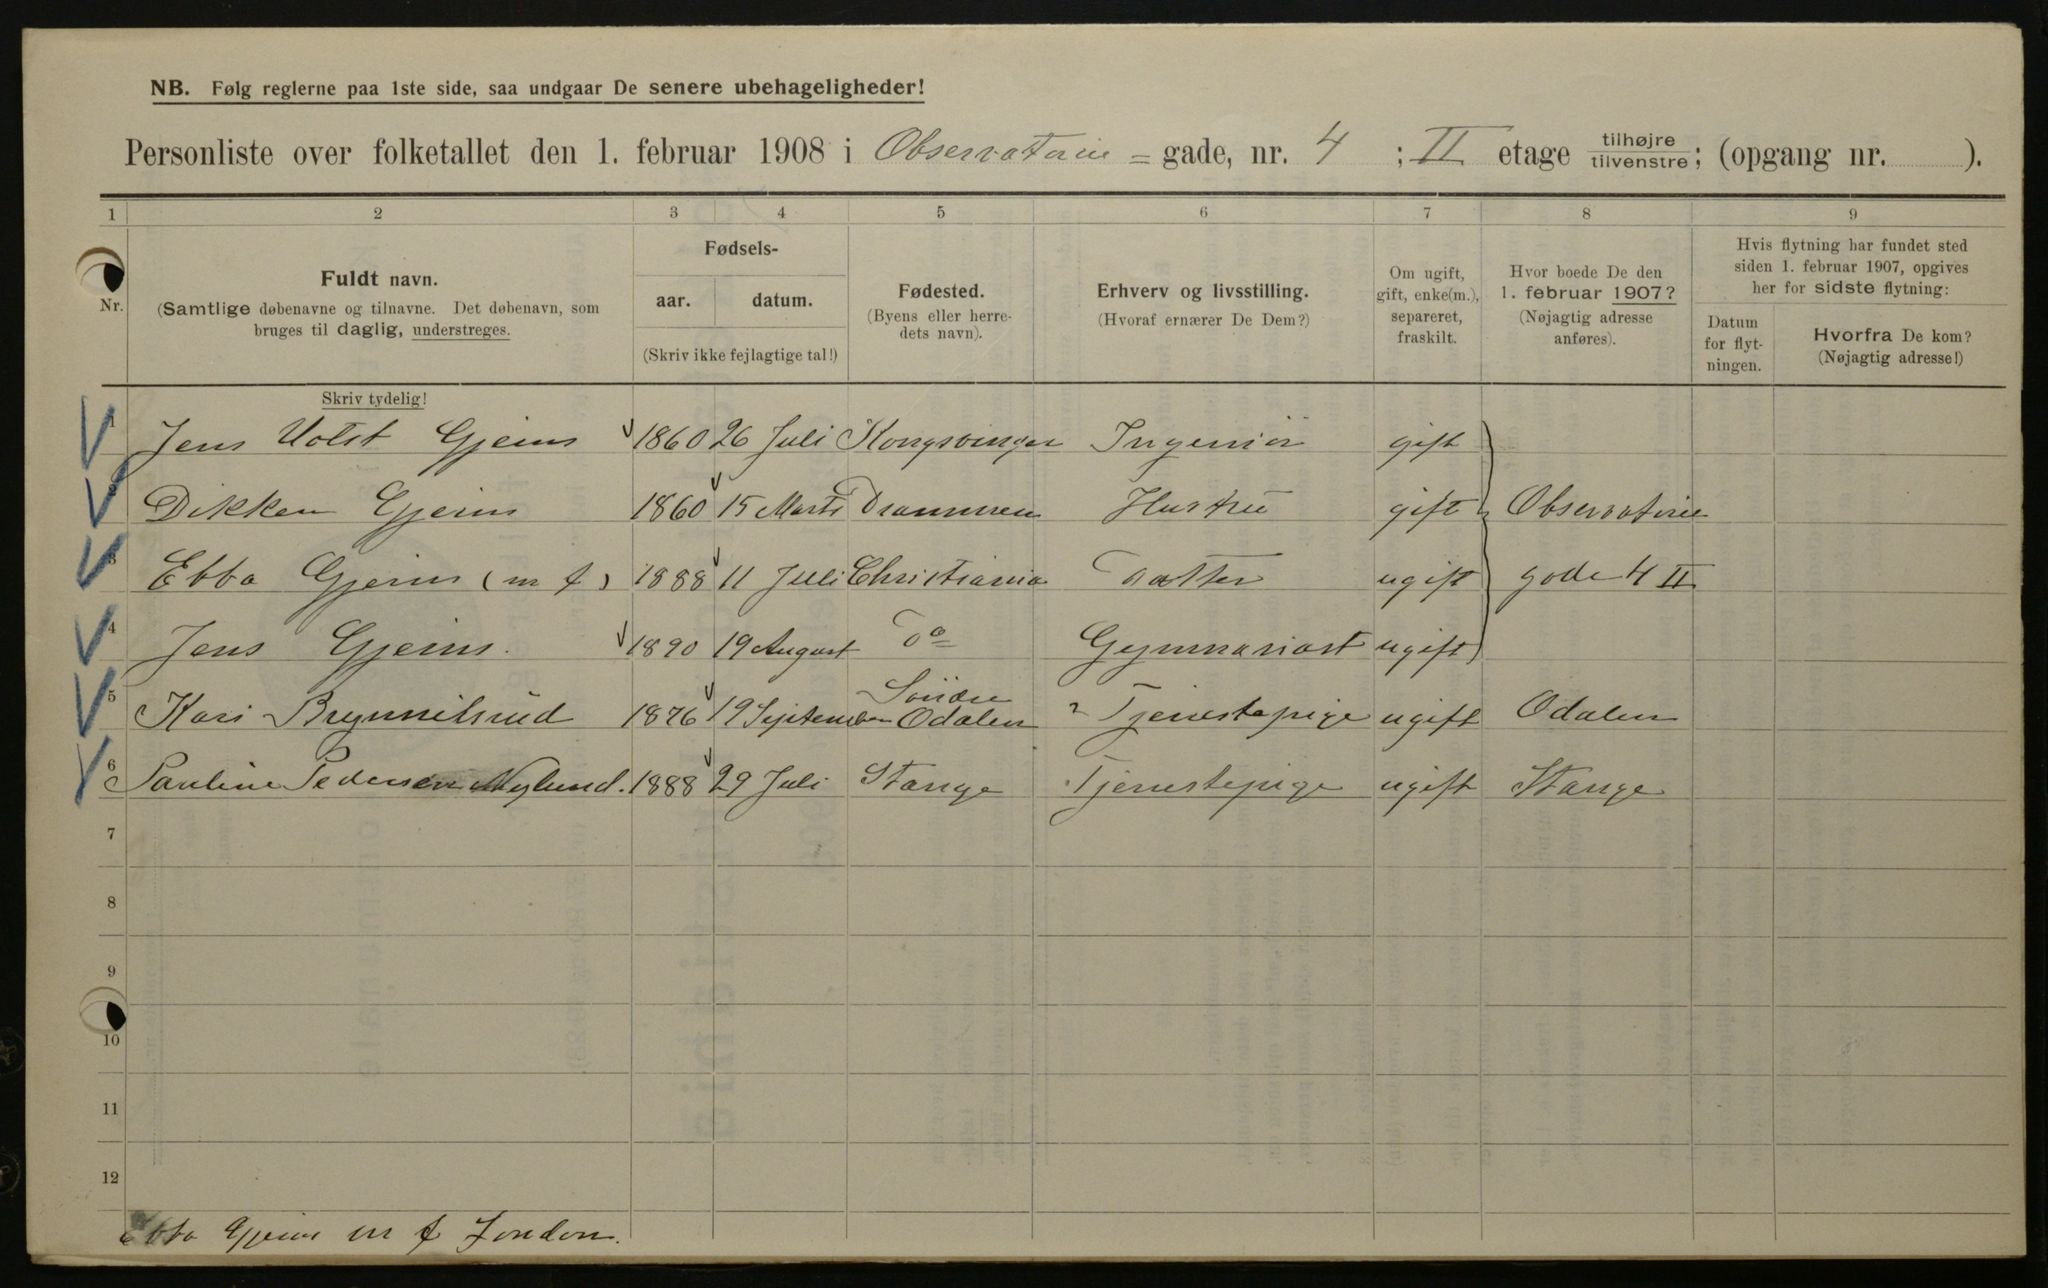 NB. Følg reglerne paa 1ste side, saa undgaar De senere ubehageligheder!
Personliste over folketallet den 1. februar 1908 i Observatorie = gade, nr. 4 ; II etage tilhøjre tilvenstre; (opgang nr. ).
1 2 3 4 5 6 7 8 9
Nr.
Fuldt navn.
(Samtlige døbenavne og tilnavne. Det døbenavn, som
bruges til daglig, understreges.
Skriv tydelig!
Fødsels-
aar. datum.
(Skriv ikke fejlagtige tal!)
Fødested.
(Byens eller herre-
dets navn).
Erhverv og livsstilling.
(Hvoraf ernærer De Dem?)
Om ugift,
gift, enke(m.),
separeret,
fraskilt.
Hvor boede De den
1. februar 1907?
(Nøjagtig adresse
anføres).
Hvis flytning har fundet sted
siden 1. februar 1907, opgives
her for sidste flytning:
Datum
for flyt-
ningen.
Hvorfra De kom?
(Nøjagtig adresse!)
1 Jens Holst Gjems 1860 26 Juli Kongsvinger Ingeniör gift
2 Dikken Gjems 1860 15 Marts Drammen Hustru gift Observatorie
3 Ebba Gjems (m f) 1888 11 Juli Christiania Datter ugift gade 4 II
4 Jens Gjems. 1890 19 August Do Gymnasiast ugift
5 Kari Brynnilsrud 1876 19 September Söndre Odalen Tjenestepige ugift Odalen
6 Pauline Pedersen Nylund. 1888 29 Juli Stange Tjenestepige ugift Stange
7
8
9
10
11
12
Ebba Gjems m f London.